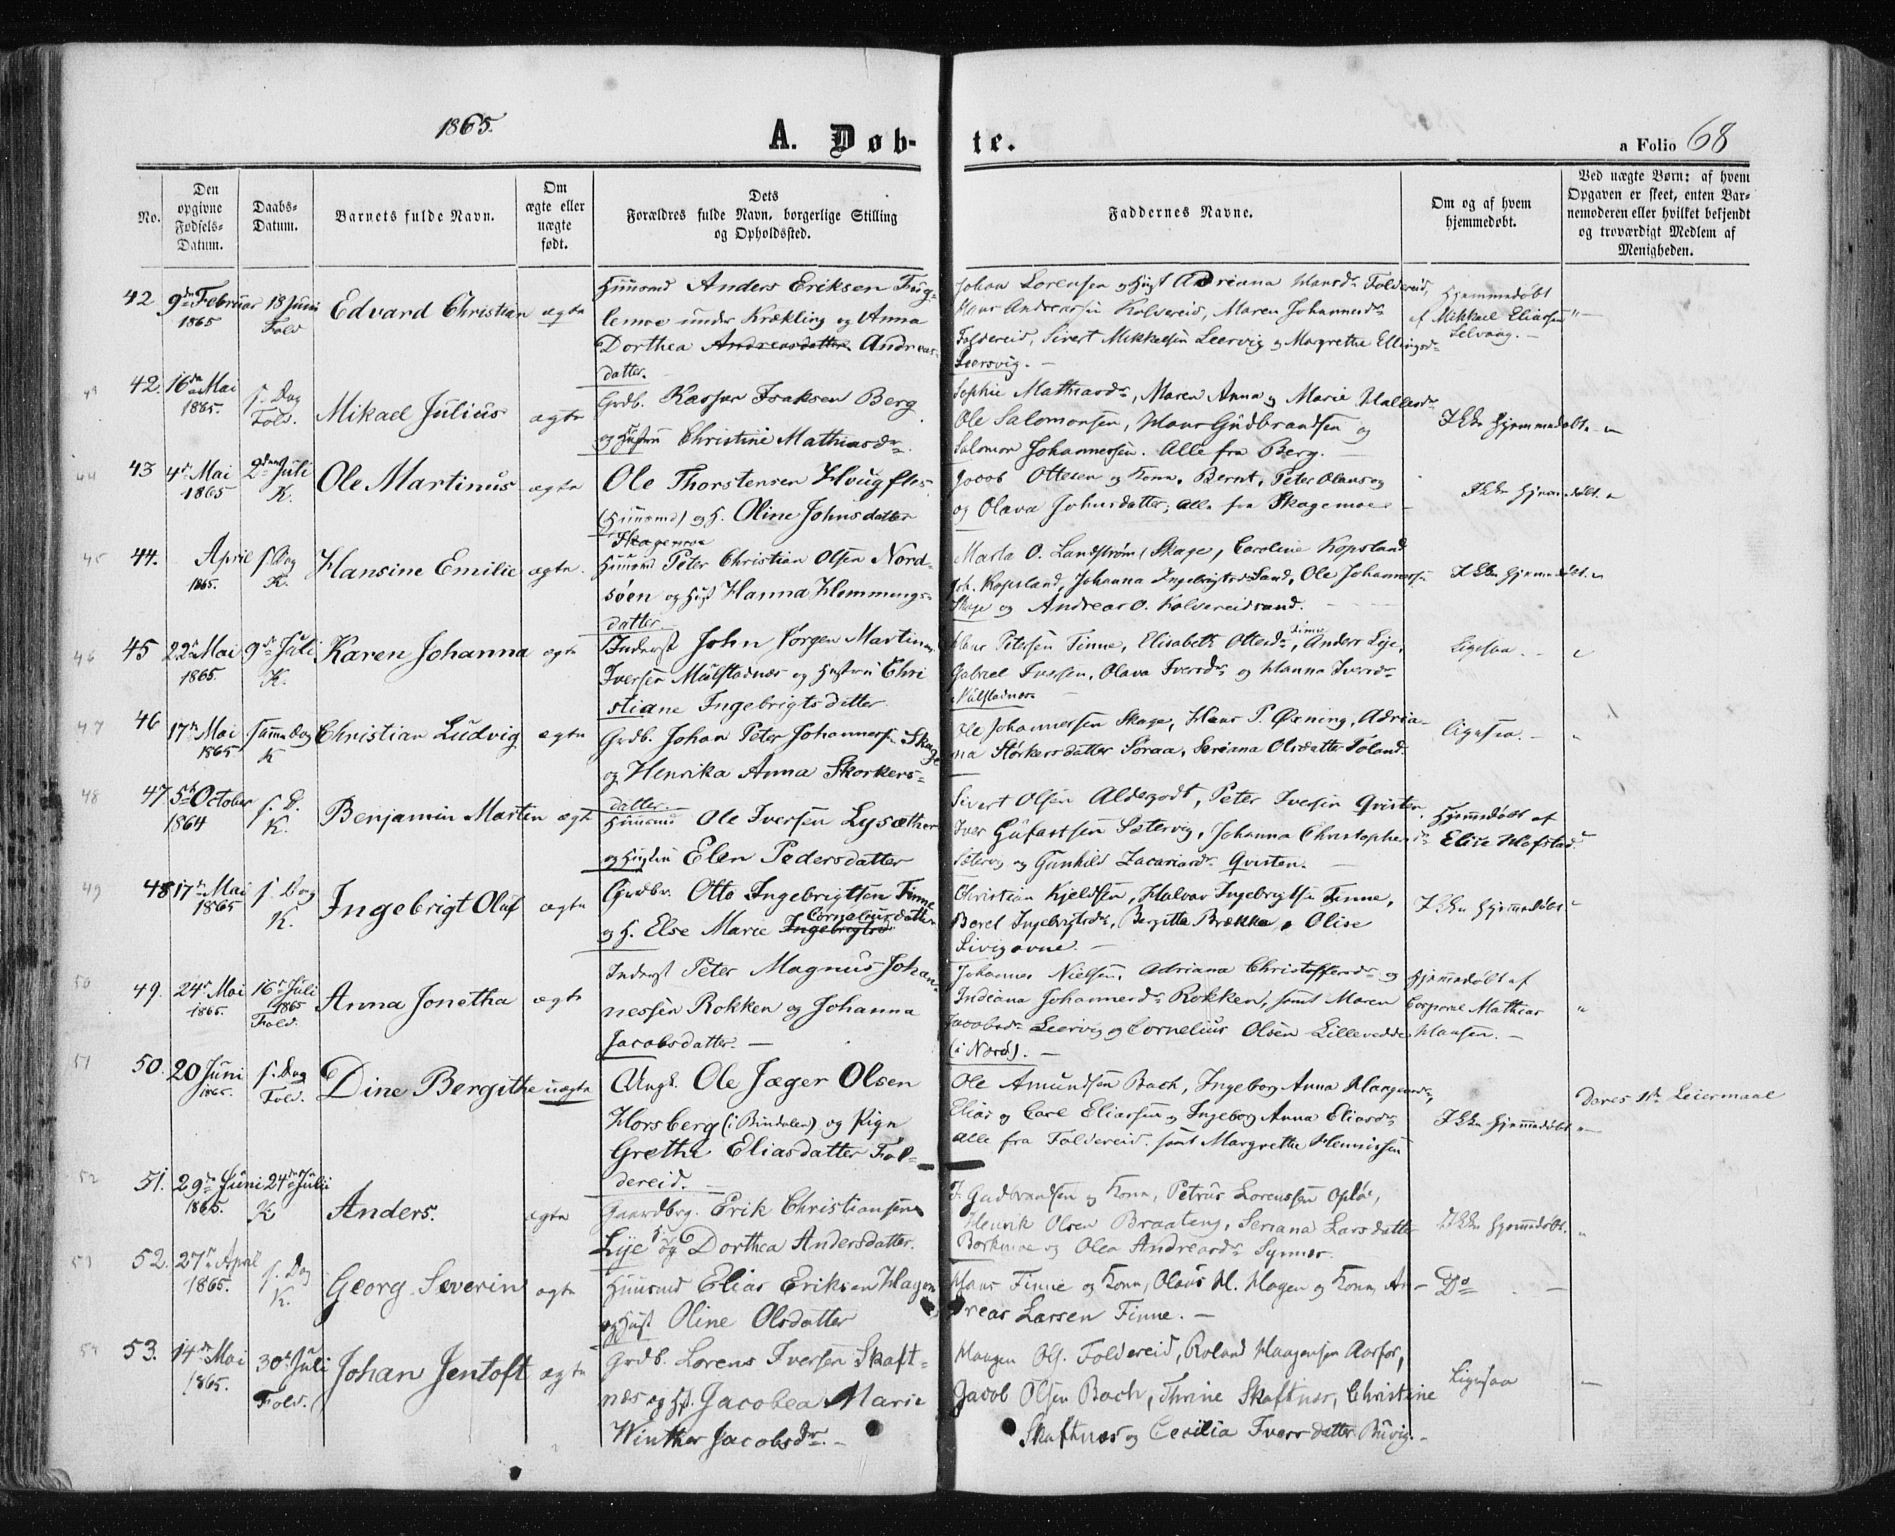 1865.
A. Døb-
te.
a Folio 68
No.
Den opgivne Fødsels-Datum.
Daabs-Datum.
Barnets fulde Navn.
Om ægte eller nægte født.
Dets Forældres fulde Navn, borgerlige Stilling og Opholdssted.
Faddernes Navne.
Om og af hvem hjemmedøbt.
Ved nægte Børn: af hvem Opgaven er skeet, enten Barnemoderen eller hvilket bekjendt og troværdigt Medlem af Menigheden.
42 9de Februar 1865 18 Juni Fold Edvard Christian ægte
Huusmd Anders Eriksen Fug-
lemoe under Krækling og Anna
Dorthea Andreasdatter Andreas-
datter.
Johan Lorensen og Hust Adriana Hansdr Foldereid,
Hans Andreassen Kolvereid, Maren Johannesdr
Foldereid, Sivert Mikkelsen Leervig og Margrethe Ellingsdr
Leervig.
Hjemmedøbt
af Mikkael Eliassen
Selvaag.
43
42. 16de Mai 1885. s. Dag Fold. Mikael Julius ægte
Grdb. Kasper Isaksen Berg
og Hustru Christine Mathiasdr.
Sophie Mathiasdr, Maren Anna og Marie Hallesdr
Ole Salomonsen, Hans Gudbrandsen og
Salomon Johannessen. Alle fra Berg.
Ikke Hjemmedøbt.
44
43 4de Mai 1865 2den Juli K. Ole Martinus ægte
Ole Thorstensen Haugfles
(Huusmd) og H. Oline Johnsdatter
Skagemoe
Jacob Ottesen og Kone, Bernt, Peter Olaus og
og Olava Johnsdatter, alle fra Skagemoe
Ikke Hjemmedøbt.
45
44. April 1865. s. Dag K. Hansine Emilie ægte.
Huusmd Peter Christian Olsen Nord-
søen og Hust Hanna Hemmings-
datter
Marta O. Landstrøm, Skage, Caroline Kopsland
Joh. Kopsland, Johanna Ingebrigtsdr Sand, Ole Johannessen
Skage og Andreas O. Kolvereidsand.
Ikke Hjemmedøbt.
46
45 22de Mai 1865. 9de Juli K. Karen Johanna ægte
Inderst John Jørgen Martinus
Iversen Mulstadnes og Hustru Chri
stiane Ingebrigtsdatter
Hans Petersen Finne, Elisabeth Ottesdr Finne, Anders Lije,
Gabriel Iversen, Olava Iversdr og Hanna Iversdr
Mulstadnes
Ligesaa.
47
46 17de Mai 1865. samme Dag K Christian Ludvig ægte
Grdb. Johan Peter Johannessen Skage
og Henrika Anna Skorkers-
datter.
Ole Johannessen Skage, Hans P. Øxning, Adria-
na Størkersdatter Soraa, Seriana Olsdatter Foland.
Ligesaa.
48
47 5te October 1864 s. D. K. Benjamin Martin ægte
Huusmd Ole Iversen Lysæther
og Hustru Elen Pedersdatter
Sivert Olsen Aldegodt, Peter Iversen Qvisten,
Iver Gufastsen Sætervig, Johanna Christophersdr
Sætervig og Gunhild Zacariasdr Qvisten.
Hjemmedøbt af
Elise Hofstad
49
48 17de Mai 1865 s. Dag K. Ingebrigt Oluf ægte
Grdbr. Otto Ingebrigtsen Finne
og H. Else Marie Ingebrigtsd Corneliusdatter
Christian Kjeldsen, Halvor Ingebrigtsen Finne,
Beret Ingebrigtsdr, Bergitte Brækka, Olise
Sivigovne.
Ikke Hjemmedøbt.
50
49. 24de Mai 1865. 16de Juli 1865 Fold. Anna Jonetha ægte
Inderst Peter Magnus Johan-
nessen Rokken og Johanna
Jacobsdatter.
Johannes Nielsen, Adriana Christoffersdr og
Indiana Johannesdr Rokken, samt Maren
Jacobsdr Leervig og Cornelius Olsen Lillevedde
(i Nærø).
Hjemmedøbt af
Corporal Mathias
Hansen.
51
50. 20 Juni 1865. s. Dag Fold. Dine Bergithe uægte
Ungk. Ole Jæger Olsen
Horsberg (i Bindalen) og Pige
Grethe Eliasdatter Fol-
dereid.
Ole Amundsen Bach, Ingeborg Anna Haagensdr,
Elias og Carl Eliassen og Ingeborg Anna Eliasdr
alle fra Foldereid. samt Margrethe Henriksen
Ikke Hjemmedøbt.
Deres 1ste Leiermaal
52
51. 29de Juni 1865. 24de Juli K Anders. ægte
Gaardbrg. Erik Christiansen
Lije og Dorthea Andersdatter.
J. Gudbrandsen og Kone, Petrus Lorenssen Opløe,
Henrik Olsen Braateng, Seriana Larsdatter
Borkmoe og Olea Andreasdr Synnes.
Ikke Hjemmedøbt.
53
52. 27de April 1865. s. Dag K. Georg Severin ægte
Huusmd Elias Eriksen Hagen
og Hust Oline Olsdatter
Hans Finne og Kone, Olaus H. Hagen og Kone An-
dreas Larsen Finne.
Do
54
53. 14de Mai 1865. 30te Juli Fold. Johan Jentoft ægte
Grdb. Lorens Iversen Skaft-
næs og Hst. Jacobea Marie
Winther Jacobsdr.
Haagen Ols. Foldereid, Roland Haagensen Aarfor,
Jacob Olsen Bach, Thrine Skaftnæs, Christine
Skaftnæs og Cecilia Iversdatter Buvig.
Ligesaa